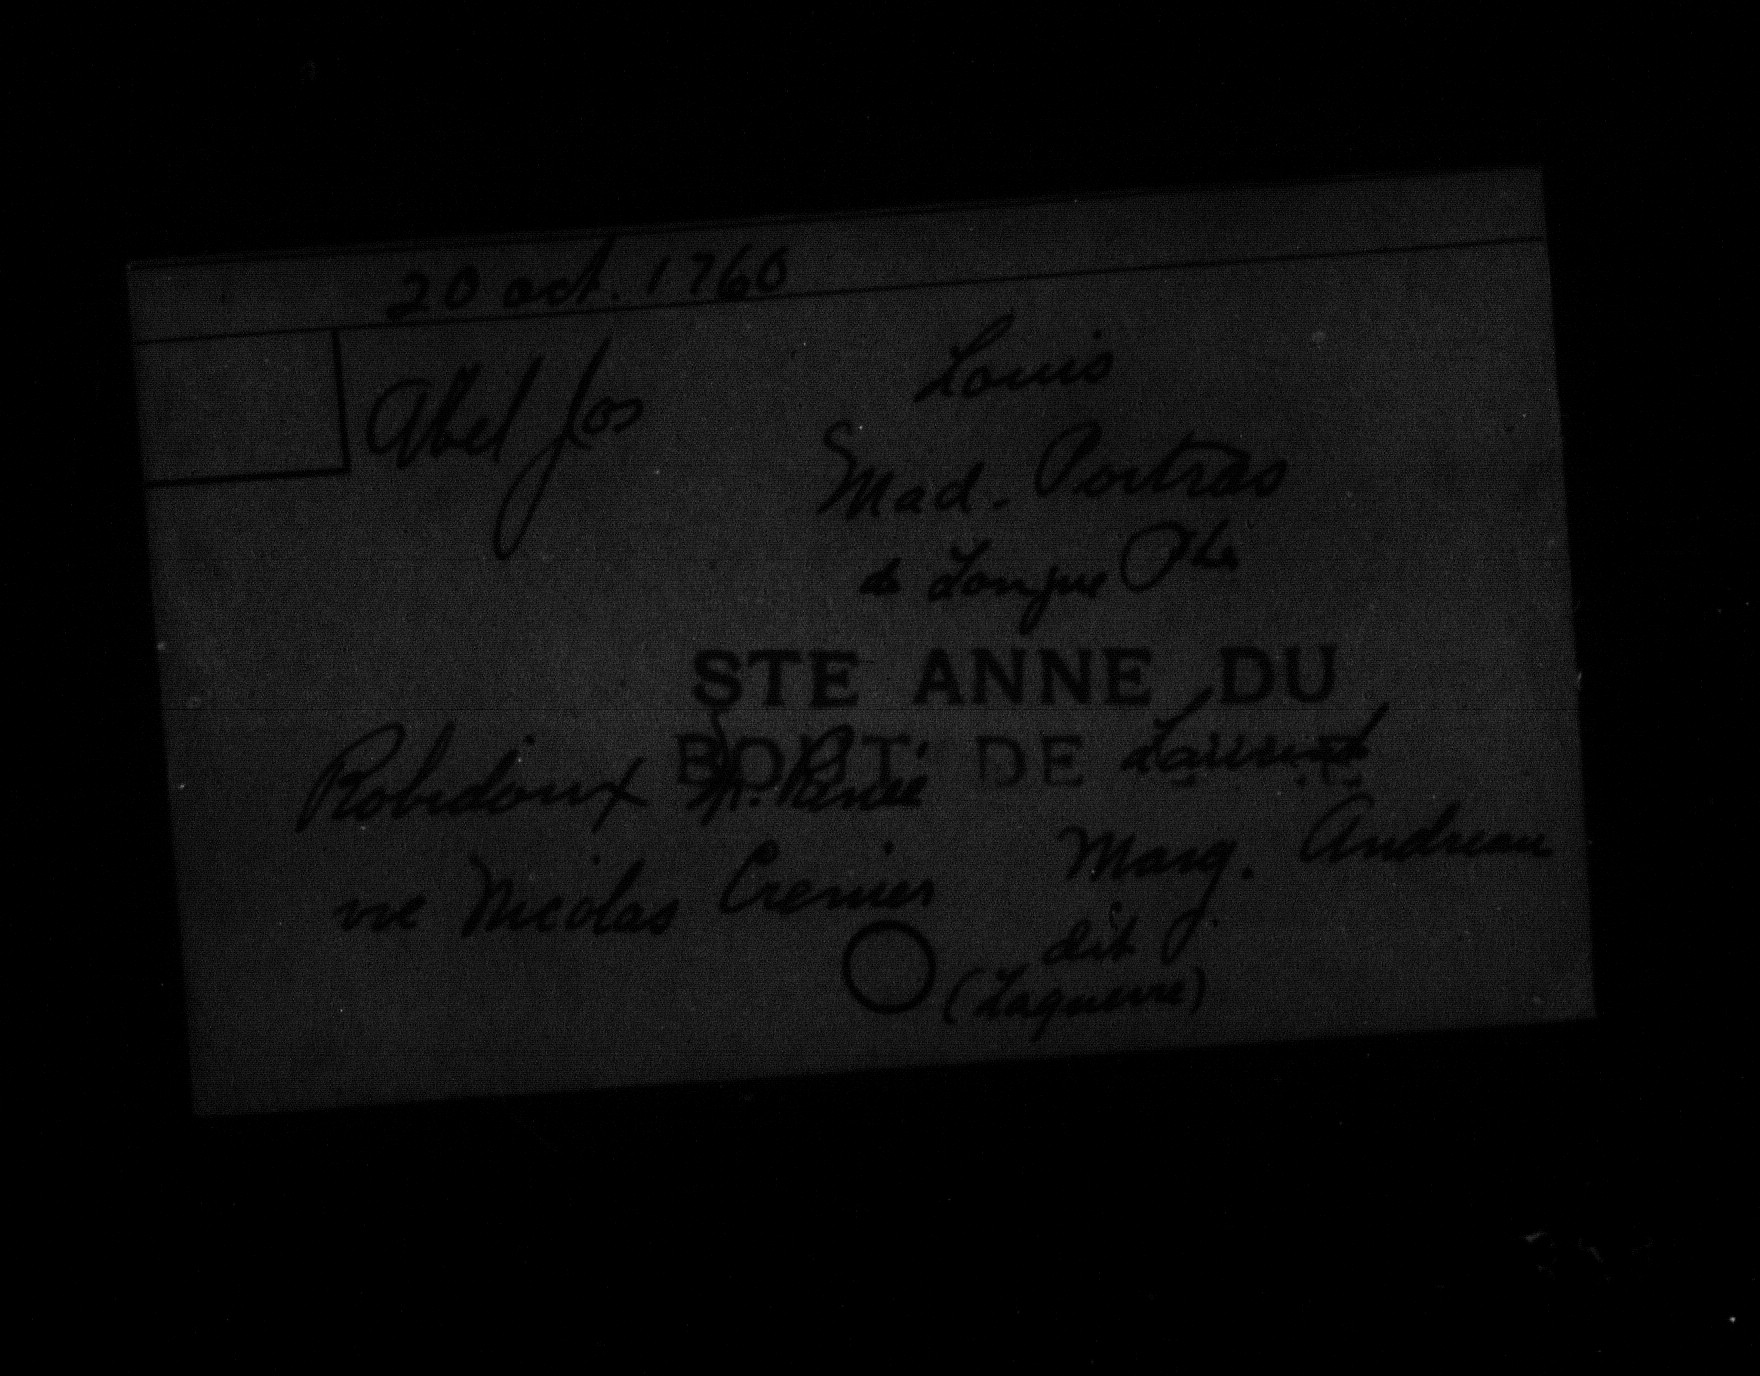 20 oct. 1760
Abel Jos
Louis
Mad. Poitras
de Longue Pte
STE ANNE DU
BOUT DE L'ILE
Robidoux M. Renée
Laurent
ve Nicolas Crenier
Marg. Andreau
dit
(Laguerre)